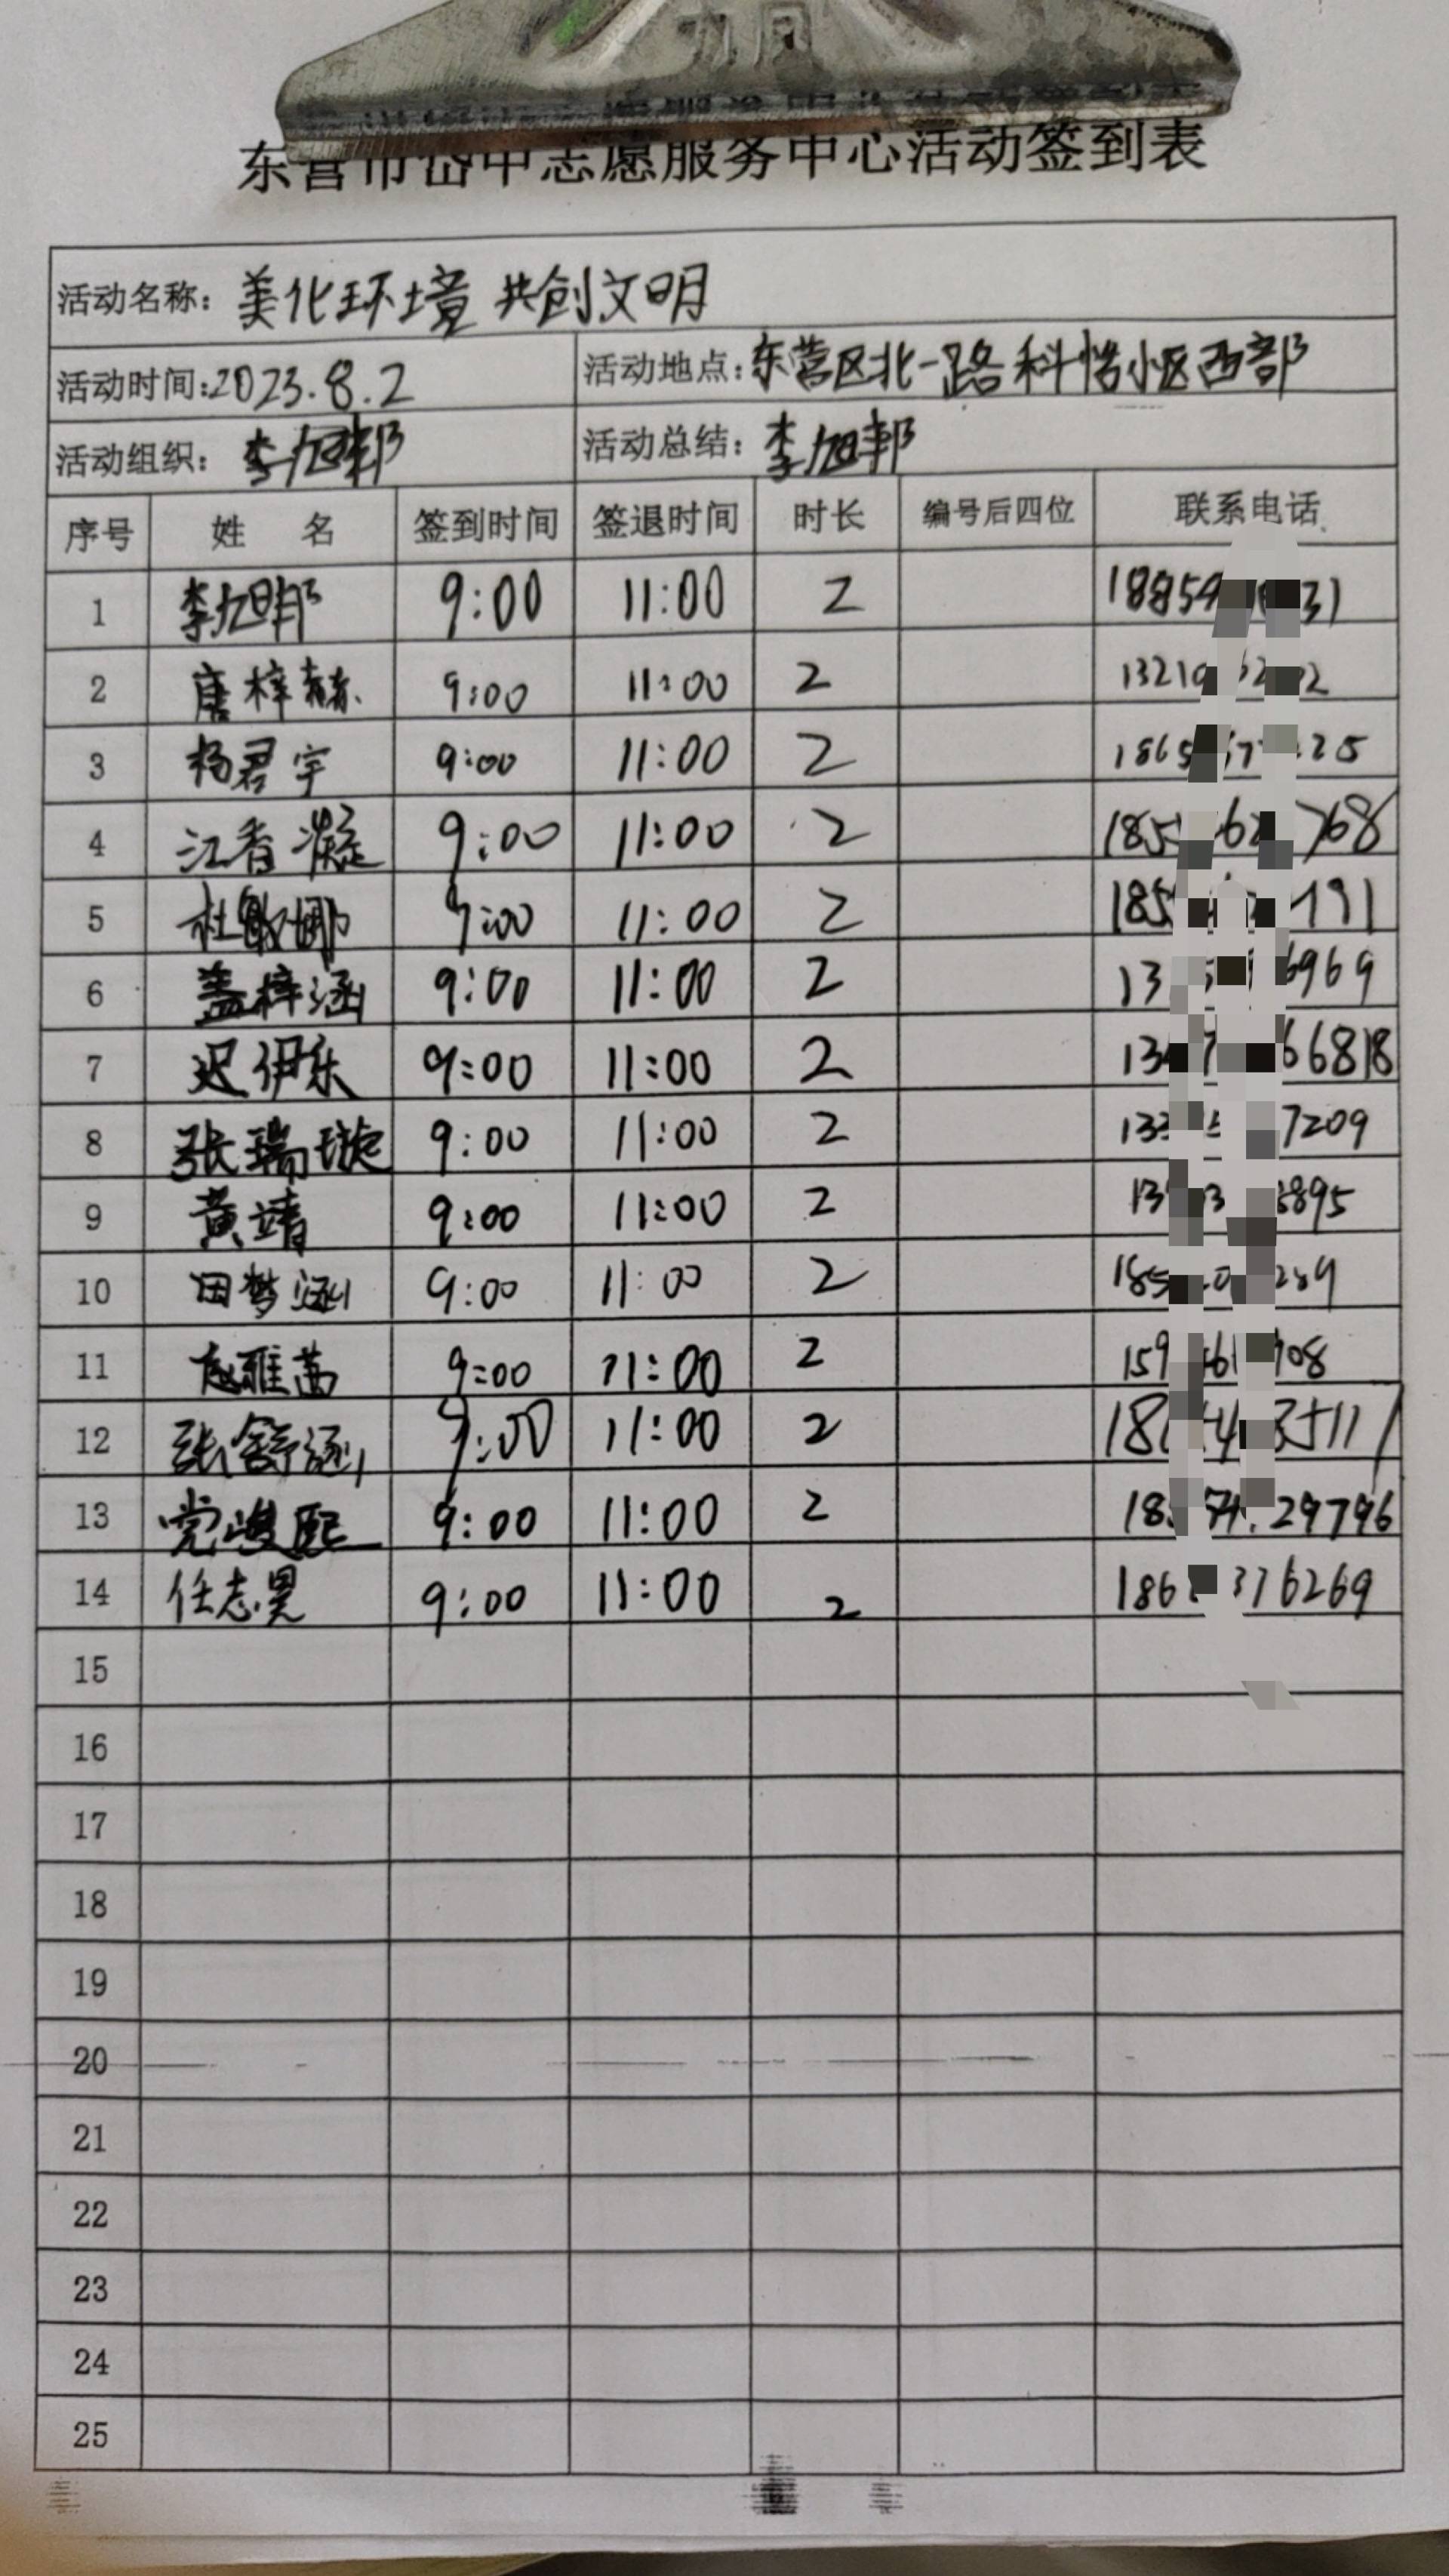 东营市岱申志愿服务中心活动签到表
活动名称：美化环境 共创文明
活动时间:2023.8.2 活动地点：东营区北一路科怡小区西部
活动组织： 李旭邦 活动总结：李旭邦
序号 姓 名 签到时间 签退时间 时长 编号后四位 联系电话
1 李旭邦 9:00 11:00 2
2 唐梓赫 9:00 11:00 2
3 杨君宇 9:00 11:00 2
4 江香凝 9:00 11:00 2
5 杜敏娜 9:00 11:00 2
6 盖梓涵 9:00 11:00 2
7 迟伊乐 9:00 11:00 2
8 张瑞璇 9:00 11:00 2
9 黄靖 9:00 11:00 2
10 田梦涵 9:00 11:00 2
11 9:00 11:00 2
12 张舒涵 9:00 11:00 2
13 党峻熙 9:00 11:00 2
14 任志昊 9:00 11:00 2
15
16
17
18
19
20
21
22
23
24
25